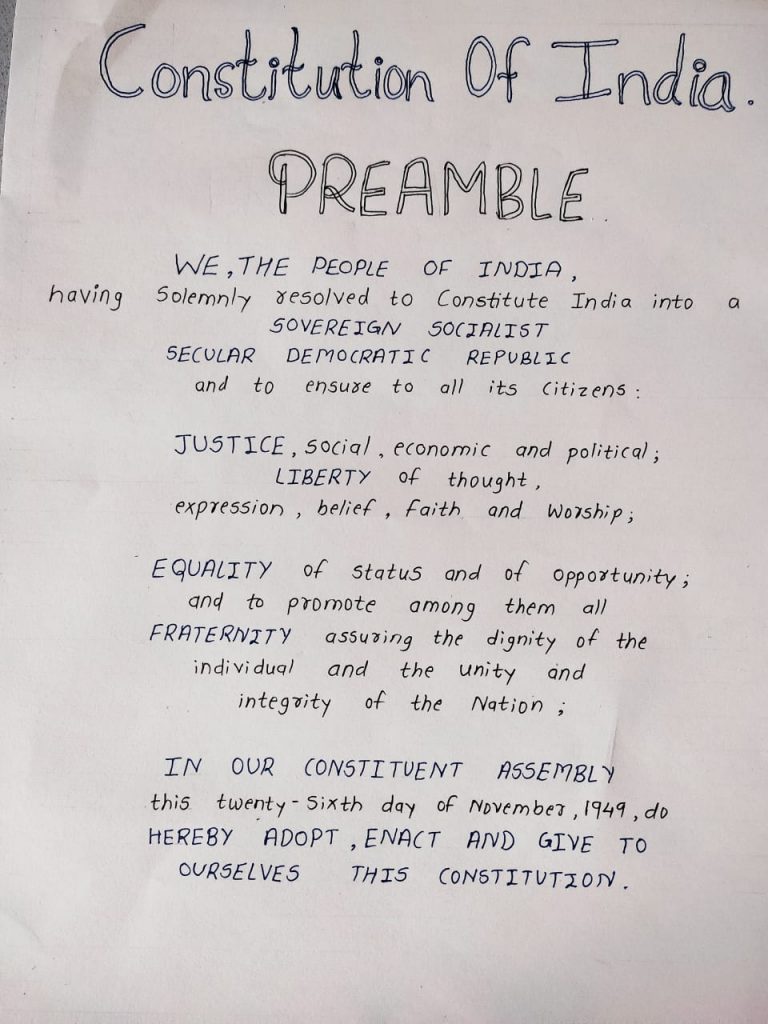 Constitution Of India.
PREAMBLE
WE, THE PEOPLE OF INDIA,
having Solemnly resolved to Constitute India into a
SOVEREIGN SOCIALIST
SECULAR DEMOCRATIC REPUBLIC
and to ensure to all its Citizens:
JUSTICE, social, economic and political;
LIBERTY of thought,
expression, belief, Faith and Worship;
EQUALITY of status and of opportunity;
and to promote among them all
FRATERNITY assuring the dignity of the
individual and the unity and
integrity of the Nation;
IN OUR CONSTITUENT ASSEMBLY
this twenty-Sixth day of November, 1949, do
HEREBY ADOPT, ENACT AND GIVE TO
OURSELVES THIS CONSTITUTION.